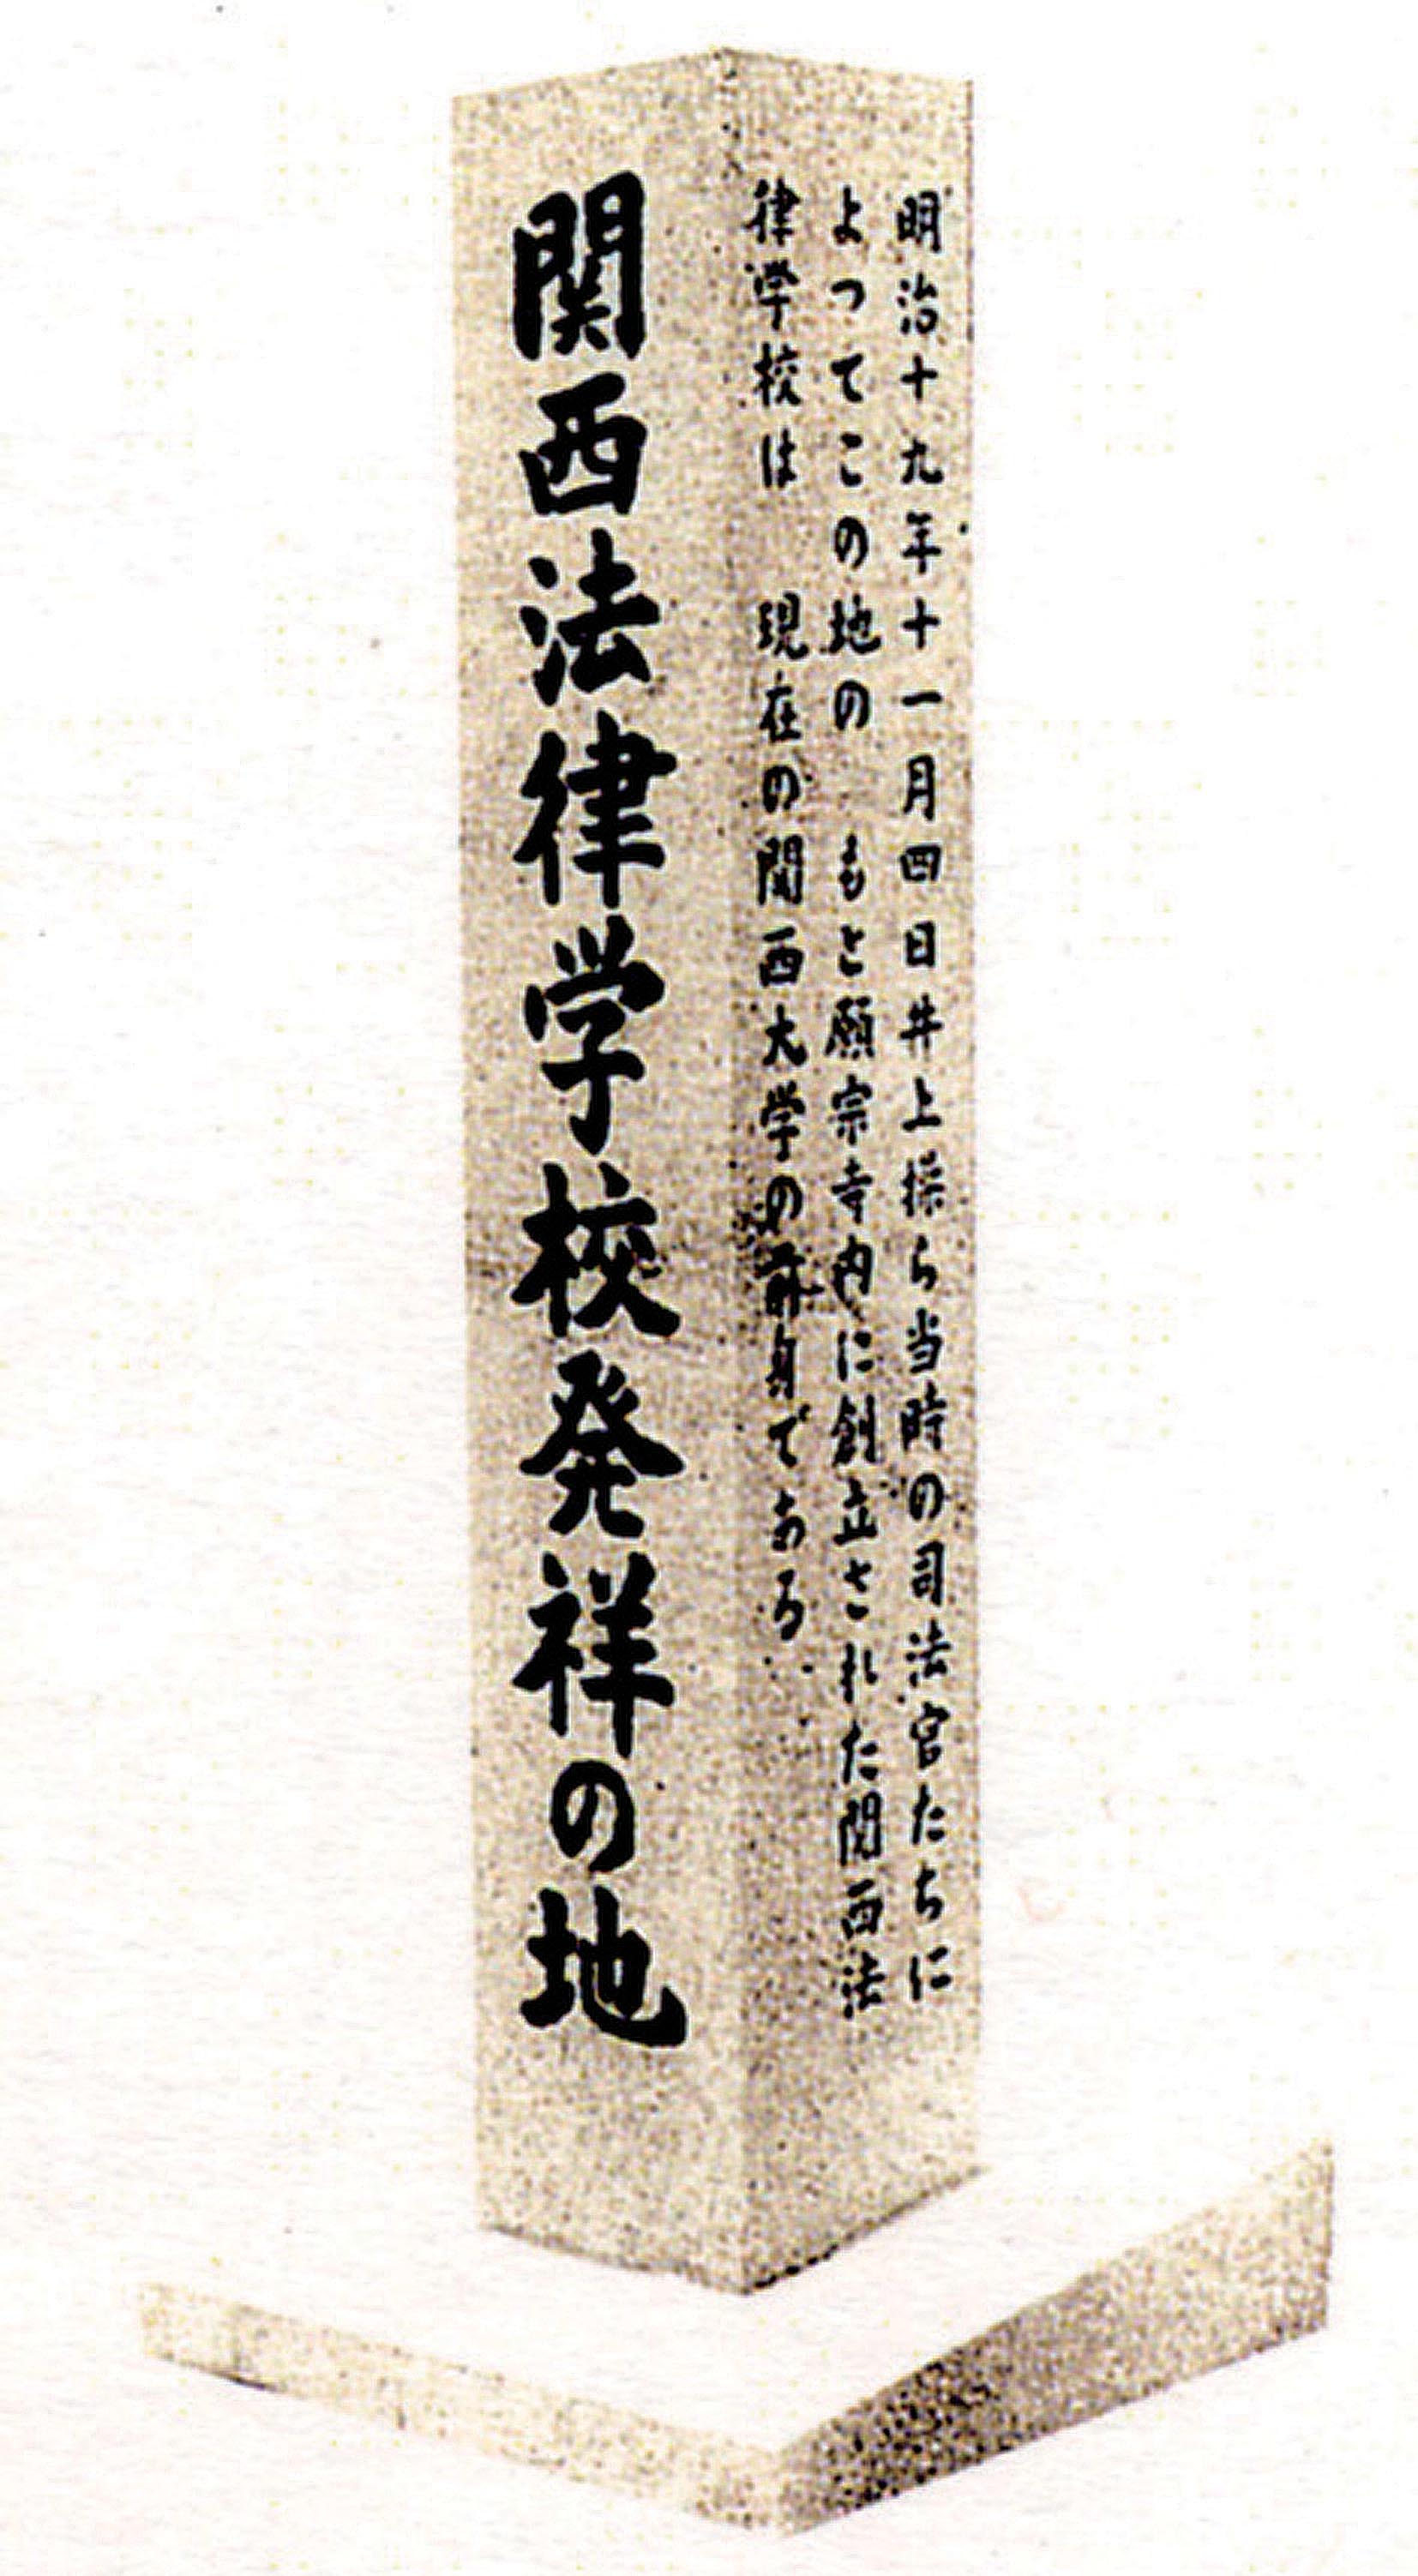 関西法律学校発祥の地
明治十九年十一月四日井上操ら当時の司法官たちに
よってこの地の　もと願宗寺内に創立された関西法
律学校は　現在の関西大学の前身である